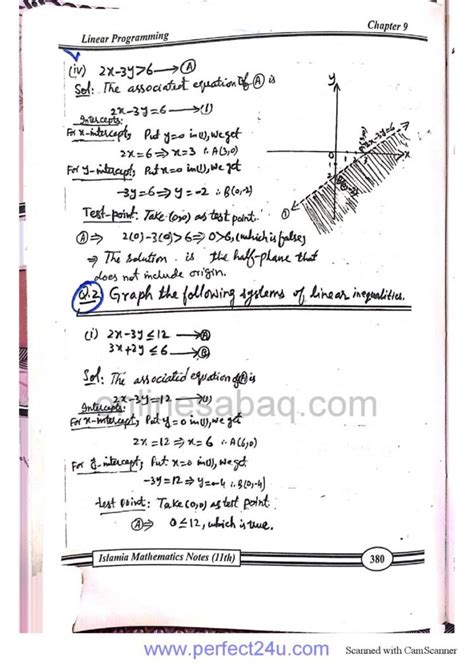 Linear Programming Chapter 9
(iv) 2x-3y>6 → (A)
Sol: The associated equation of (A) is
2x-3y=6 → (1)
Intercepts:
For x-intercept, Put y=0 in (1), we get
2x=6 ⇒ x=3 ∴ A(3,0)
For y-intercept, Put x=0 in (1), we get
-3y=6 ⇒ y=-2 ∴ B(0,-2)
Test-point: Take (0,0) as test point.
(A) ⇒ 2(0)-3(0)>6 ⇒ 0>6, (which is false)
⇒ The solution is the half-plane that
does not include origin.
y
x
0
2x-3y=6
Q.2 Graph the following systems of linear inequalities.
(i) 2x-3y≤12 → (A)
3x+2y≤6 → (B)
Sol: The associated equation of (A) is
2x-3y=12 → (1)
Intercepts:
onlinesabaq.com
For x-intercept, Put y=0 in (1), we get
2x=12 ⇒ x=6 ∴ A(6,0)
For y-intercept, Put x=0 in (1), we get
-3y=12 ⇒ y=-4 ∴ B(0,-4)
test point: Take (0,0) as test point
(A) ⇒ 0≤12, which is true.
Islamia Mathematics Notes (11th) 380
www.perfect24u.com
Scanned with CamScanner